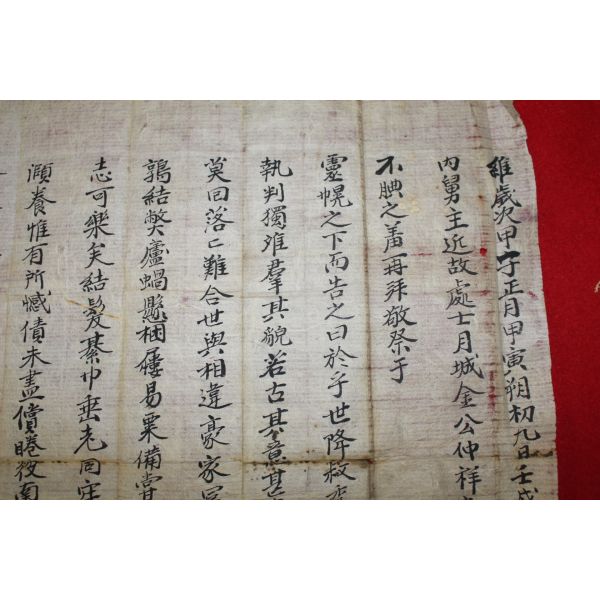 維歲次甲子正月甲寅朔初九日壬戌
內舅主近故處士月城金公仲祥
不腆之羞再拜敬祭于
靈幌之下而告之曰於乎世降叔季
執判獨雅羣其貌若古其意甚
莫回落二難合世與相違豪家
鶉結獘廬蝸懸梱屨易粟備嘗
志可樂矣結髮綦巾垂老同牢
灝養惟有所憾債未盡償睠彼南